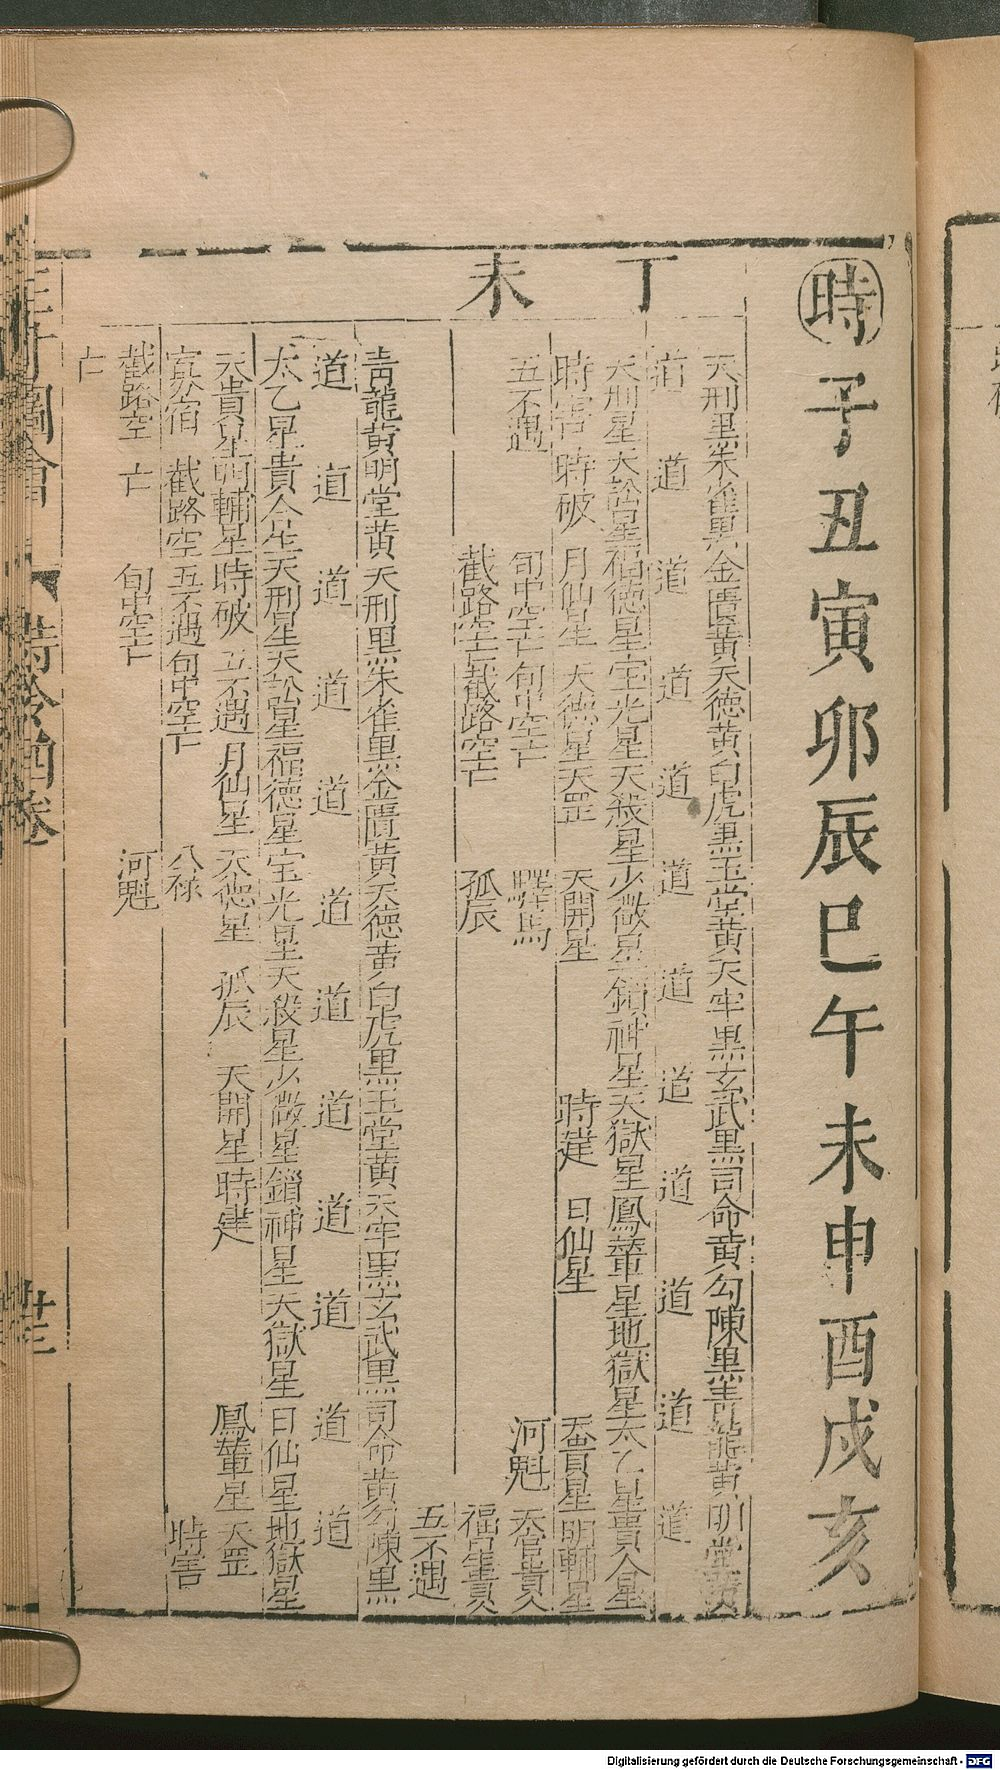 時子丑寅卯辰巳午未申酉戌亥
丁未
天刑黒朱雀黒金匱黃天德黃白虎黒玉堂黃天牢黒玄武黒司命黃勾陳黒青龍黃明堂黃
道道道道道道道道道道道道
天刑星天訟星福德星宝光星天殺星少微星鎖神星天獄星鳳輦星地獄星太乙星貴人星
時害 時破 月仙星 天德星天罡 天開星 時建 日仙星 天貴星明輔星
五不遇 旬中空亡旬中空亡 驛馬 河魁 天官貴人
截路空亡截路空亡 孤辰 福星貴人
五不遇
青龍黃明堂黃天刑黒朱雀黒金匱黃天德黃白虎黒玉堂黃天牢黒玄武黒司命黃勾陳黒
道道道道道道道道道道道道
太乙星貴人星天刑星天訟星福德星宝光星天殺星少微星鎖神星天獄星日仙星地獄星
天貴星明輔星時破 五不遇 月仙星 天德星 孤辰 天開星時建 鳳輦星 天罡
寡宿 截路空 五不遇旬中空亡 八祿 時害
截路空 亡 旬中空亡 河魁
亡
三才圖會 時令四卷 卅三
Digitalisierung gefördert durch die Deutsche Forschungsgemeinschaft - DFG